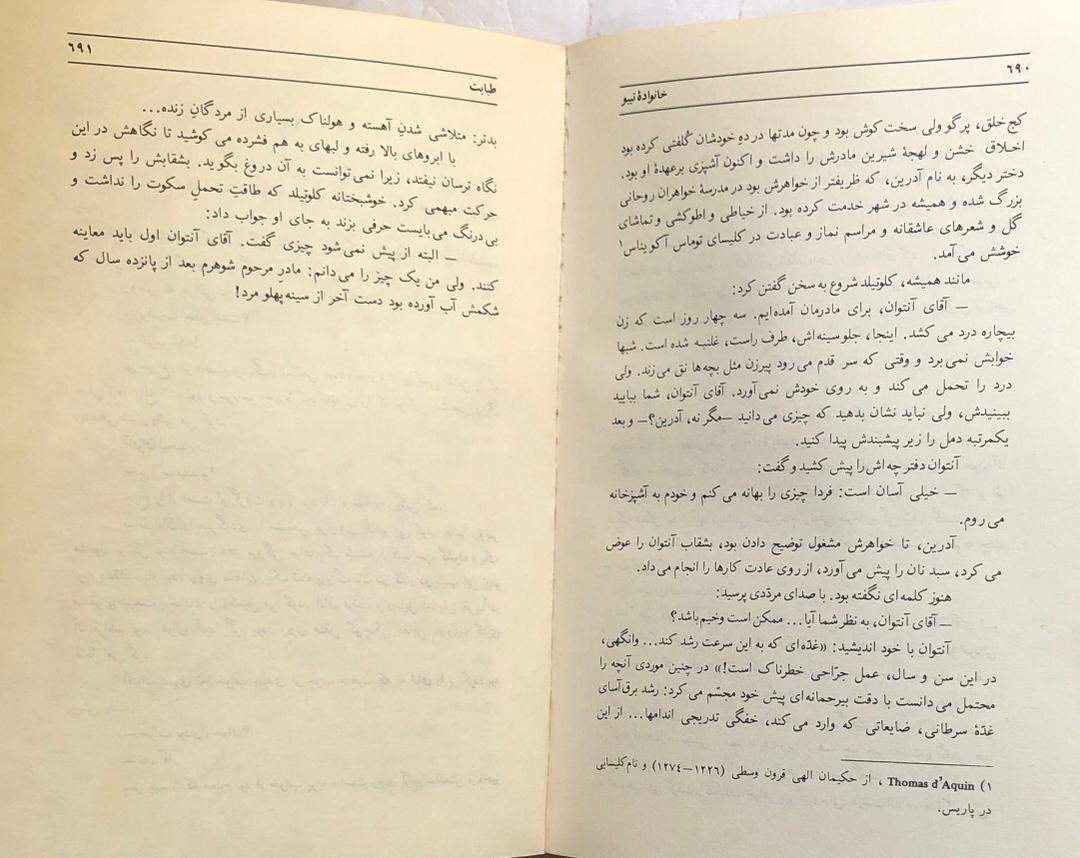 ۶۹۰
خانوادهٔ تیبو
کج خلق، پرگو ولی سخت کوش بود و چون مدتها در دهِ خودشان کُلفتی کرده بود
اخلاق خشن و لهجهٔ شیرین مادرش را داشت و اکنون آشپزی برعهدهٔ او بود.
دختر دیگر، به نام آدرین، که ظریفتر از خواهرش بود در مدرسهٔ خواهران روحانی
بزرگ شده و همیشه در شهر خدمت کرده بود. از خیاطی و اطوکشی و تماشای
گل و شعرهای عاشقانه و مراسم نماز و عبادت در کلیسای توماس آکویناس۱
خوشش می آمد.
مانند همیشه، کلوتیلد شروع به سخن گفتن کرد:
— آقای آنتوان، برای مادرمان آمده‌ایم. سه چهار روز است که زن
بیچاره درد می کشد. اینجا، جلو سینه‌اش، طرف راست، غلنبه شده است. شبها
خوابش نمی برد و وقتی که سر قدم می رود پیرزن مثل بچه‌ها نق می زند. ولی
درد را تحمل می کند و به روی خودش نمی آورد. آقای آنتوان، شما بیایید
ببینیدش، ولی نباید نشان بدهید که چیزی می دانید —مگر نه، آدرین؟— و بعد
یکمرتبه دمل را زیر پیشبندش پیدا کنید.
آنتوان دفترچه‌اش را پیش کشید و گفت:
— خیلی آسان است: فردا چیزی را بهانه می کنم و خودم به آشپزخانه
می روم.
آدرین، تا خواهرش مشغول توضیح دادن بود، بشقاب آنتوان را عوض
می کرد، سبد نان را پیش می آورد، از روی عادت کارها را انجام می داد.
هنوز کلمه ای نگفته بود. با صدای مردّدی پرسید:
— آقای آنتوان، به نظر شما آیا... ممکن است وخیم باشد؟
آنتوان با خود اندیشید: «غدّه‌ای که به این سرعت رشد کند... وانگهی،
در این سن و سال، عمل جرّاحی خطرناک است!» در چنین موردی آنچه را
محتمل می دانست با دقت بیرحمانه‌ای پیش خود مجسّم می کرد: رشد برق‌آسای
غدّهٔ سرطانی، ضایعاتی که وارد می کند، خفگی تدریجی اندامها... از این
۱) Thomas d’Aquin، از حکیمان الهی قرون وسطی (۱۲۲۶—۱۲۷۴) و نام کلیسایی
در پاریس.
۶۹۱
طبابت
بدتر: متلاشی شدنِ آهسته و هولناک بسیاری از مردگانِ زنده...
با ابروهای بالا رفته و لبهای به هم فشرده می کوشید تا نگاهش در این
نگاه ترسان نیفتد، زیرا نمی توانست به آن دروغ بگوید. بشقابش را پس زد و
حرکت مبهمی کرد. خوشبختانه کلوتیلد که طاقتِ تحملِ سکوت را نداشت و
بی درنگ می بایست حرفی بزند به جای او جواب داد:
— البته از پیش نمی شود چیزی گفت. آقای آنتوان اول باید معاینه
کنند. ولی من یک چیز را می دانم: مادرِ مرحوم شوهرم بعد از پانزده سال که
شکمش آب آورده بود دست آخر از سینه‌پهلو مرد!